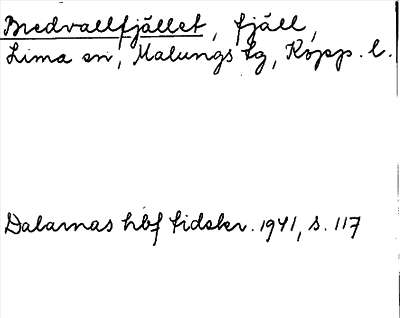 Bredvallfjället, fjäll,
Lima sn, Malungs tg, Kopp. l.
Dalarnas hbf tidskr. 1941, s. 117